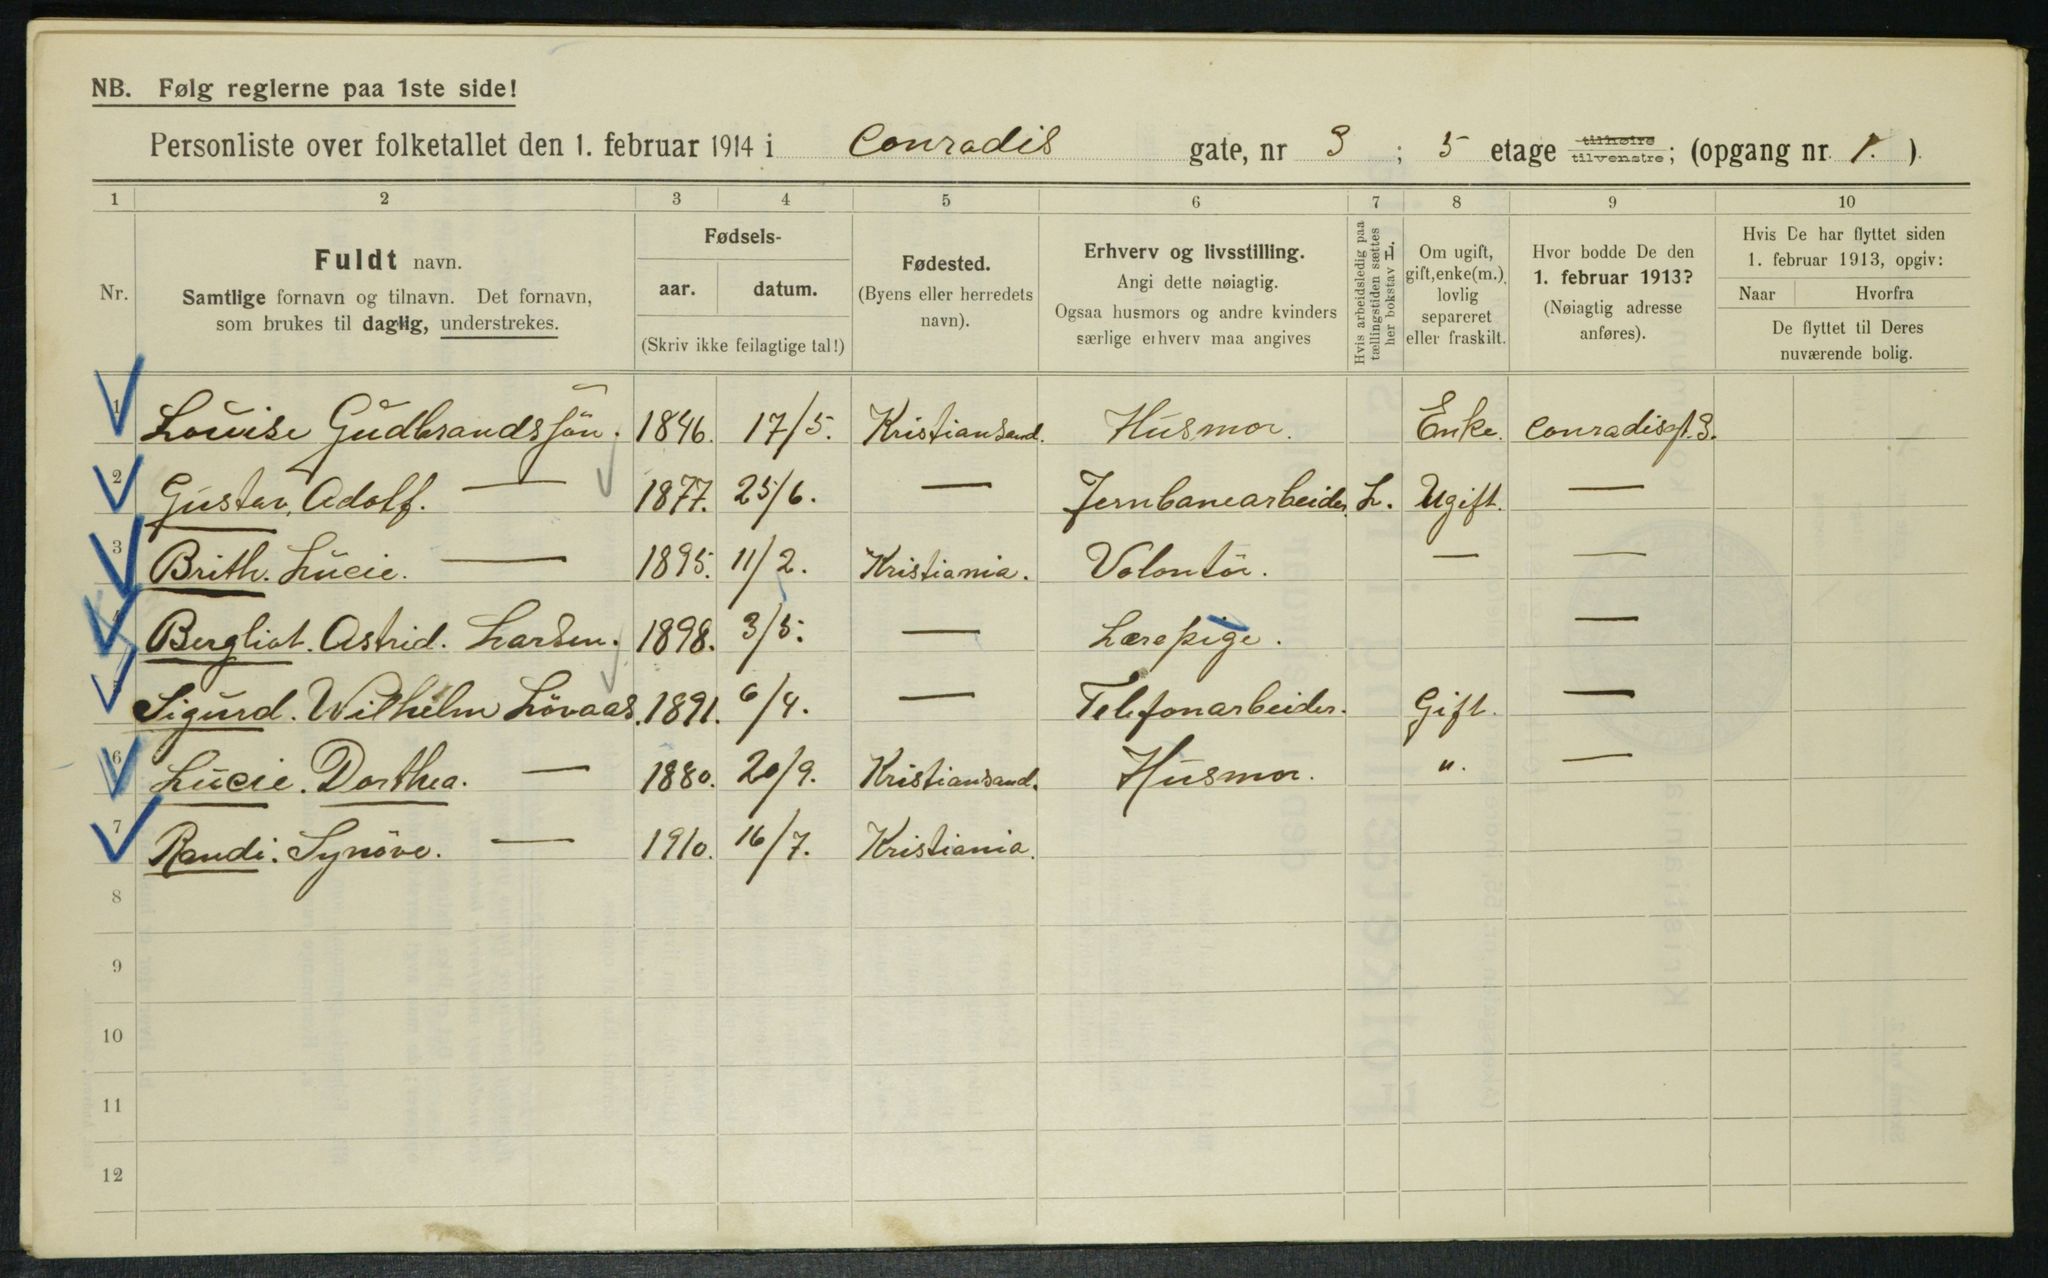 NB. Følg reglerne paa 1ste side!
Personliste over folketallet den 1. februar 1914 i Conradis gate, nr 3 ; 5 etage tilhøire tilvenstre; (opgang nr. 1. ).
1 2 3 4 5 6 7 8 9 10
Nr.
Fuldt navn.
Samtlige fornavn og tilnavn. Det fornavn,
som brukes til daglig, understrekes.
Fødsels-
aar. datum.
(Skriv ikke feilagtige tal!)
Fødested.
(Byens eller herredets
navn).
Erhverv og livsstilling.
Angi dette nøiagtig.
Ogsaa husmors og andre kvinders
særlige erhverv maa angives
Hvis arbeidsledig paa
tællingstiden sættes
her bokstav L.
Om ugift,
gift, enke(m.),
lovlig
separeret
eller fraskilt.
Hvor bodde De den
1. februar 1913?
(Nøiagtig adresse
anføres).
Hvis De har flyttet siden
1. februar 1913, opgiv:
Naar Hvorfra
De flyttet til Deres
nuværende bolig.
1 Louise Gudbrandssön. 1846. 17/5. Kristiansand. Husmor. Enke. Conradisgt. 3.
2 Gustav, Adolf. — 1877. 25/6. — Jernbanearbeider. L. Ugift. —
3 Brith. Lucie. — 1895. 11/2. Kristiania. Volontör. — —
4 Bergliot. Astrid. Larsen. 1898. 3/5. — Lærepige. —
5 Sigurd. Wilhelm Lövaas. 1891. 6/4. — Telefonarbeider. Gift. —
6 Lucie. Dorthea. — 1880. 20/9. Kristiansand. Husmor. ". —
7 Randi. Synöve. — 1910. 16/7. Kristiania.
8
9
10
11
12